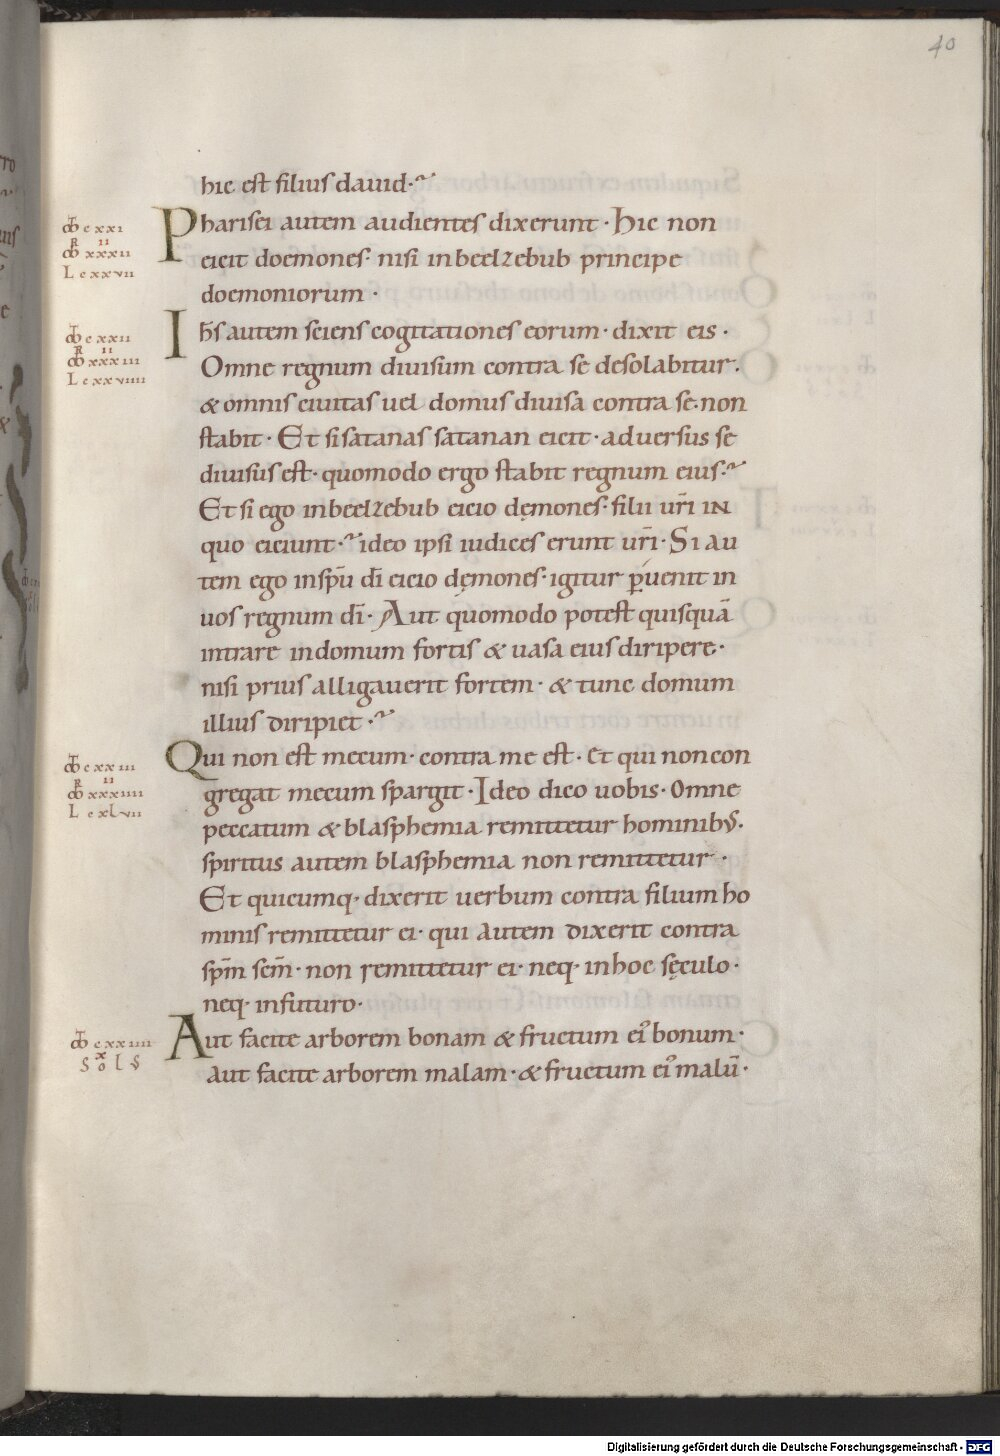 40
hic est filius dauid·
Pharisei autem audientes dixerunt· Hic non
eicit doemones· nisi in beelzebub principe
doemoniorum·
Ihs autem sciens cogitationes eorum· dixit eis·
Omne regnum diuisum contra se desolabitur·
& omnis ciuitas uel domus diuisa contra se· non
stabit· Et si satanas satanan eicit· aduersus se
diuisus est· quomodo ergo stabit regnum eius·
Et si ego in beelzebub eicio dęmones· filii uri in
quo eiciunt· ideo ipsi iudices erunt uri· Si au
tem ego in spū dī eicio dęmones· igitur puenit in
uos regnum dī· Aut quomodo potest quisquā
intrare in domum fortis & uasa eius diripere·
nisi prius alligauerit fortem· & tunc domum
illius diripiet·
Qui non est mecum· contra me est· Et qui non con
gregat mecum spargit· Ideo dico uobis· Omne
peccatum & blasphemia remittetur hominib;·
spiritus autem blasphemia non remittetur·
Et quicumq· dixerit uerbum contra filium ho
minis remittetur ei· qui autem dixerit contra
spm scm· non remittetur ei· neq· in hoc sęculo·
neq· in futuro·
Aut facite arborem bonam & fructum ei' bonum·
aut facite arborem malam· & fructum ei' malū·
c xxi
R II
xxxii
L c xxvii
c xxii
R II
xxxiii
L c xxviiii
c xxiii
R II
xxxiiii
L c xlvii
c xxiiii
x
Digitalisierung gefördert durch die Deutsche Forschungsgemeinschaft - DFG